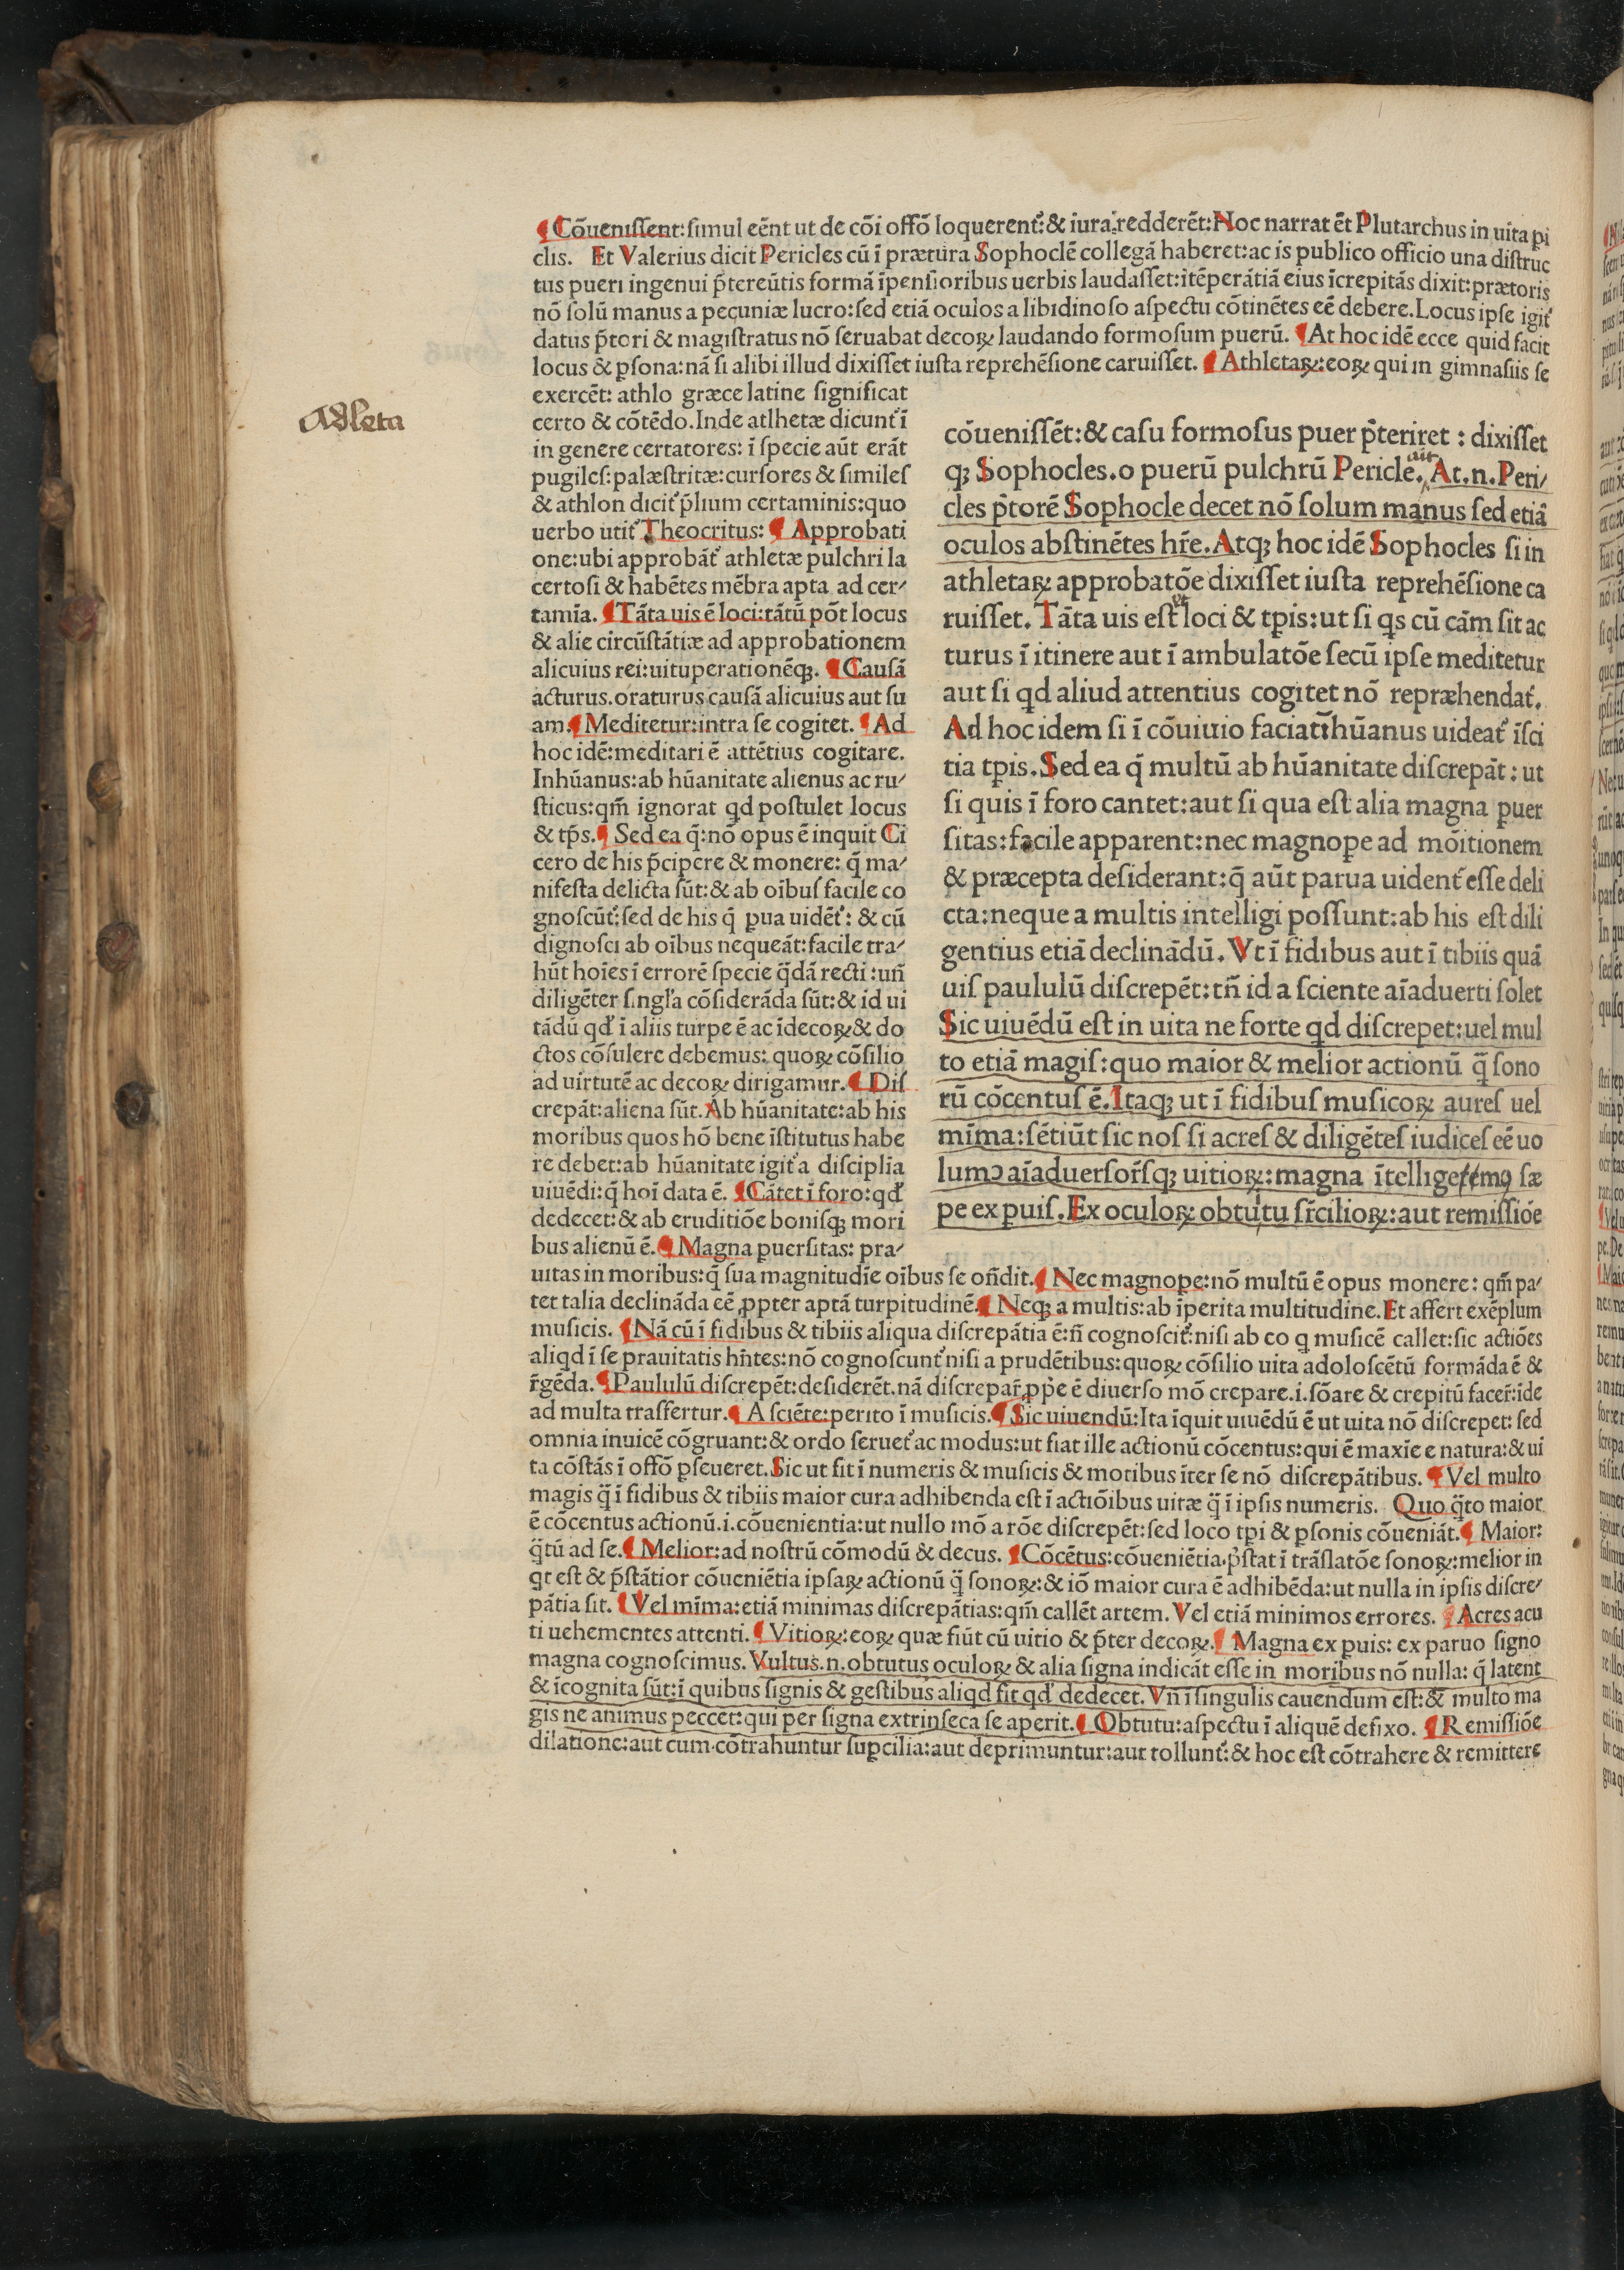 ¶ Cōueniſſent: ſimul eēnt ut de cōi offō loquerent᷑: & iura redderēt: Hoc narrat ēt Plutarchus in uita pi
clis. Et Valerius dicit Pericles cū ī prætura Sophoclē collegā haberet: ac is publico officio una diſtruc
tus pueri ingenui p̄tereūtis formā īpenſioribus uerbis laudaſſet: ītēperātiā eius īcrepitās dixit: prætoris
nō ſolū manus a pecuniæ lucro: ſed etiā oculos a libidinoſo aſpectu cōtinētes eē debere. Locus ipſe igit᷑
datus p̄tori & magiſtratus nō ſeruabat decoꝝ laudando formoſum puerū. ¶ At hoc idē ecce quid facit
locus & ꝑſona: nā ſi alibi illud dixiſſet iuſta reprehēſione caruiſſet. ¶ Athletaꝝ: eoꝝ qui in gimnaſiis ſe
exercēt: athlo græce latine ſignificat
certo & cōtēdo. Inde atlhetæ dicunt᷑ ī
in genere certatores: ī ſpecie aūt erāt
pugileſ: palæſtritæ: curſores & ſimileſ
& athlon dicit᷑ p̄lium certaminis: quo
uerbo utit᷑ Theocritus: ¶ Approbati
one: ubi approbāt᷑ athletæ pulchri la
certoſi & habētes mēbra apta ad cer⸗
tamīa. ¶ Tāta uis ē loci: tātū pōt locus
& alie circūſtātiæ ad approbationem
alicuius rei: uituperationēqꝫ. ¶ Cauſā
acturus. oraturus cauſā alicuius aut ſu
am. ¶ Meditetur: intra ſe cogitet. ¶ Ad
hoc idē: meditari ē attētius cogitare.
Inhūanus: ab hūanitate alienus ac ru⸗
ſticus: qm̄ ignorat qd poſtulet locus
& tp̄s. ¶ Sed ea q̄: nō opus ē inquit Ci
cero de his p̄cipere & monere: q̄ ma⸗
nifeſta delicta ſūt: & ab oībuſ facile co
gnoſcūt᷑: ſed de his q̄ ꝑua uidēt᷑: & cū
dignoſci ab oībus nequeāt: facile tra⸗
hūt hoīes ī errorē ſpecie q̄dā recti: uñ
diligēter ſingl'a cōſiderāda ſūt: & id ui
tādū qd' ī aliis turpe ē ac īdecoꝝ & do
ctos cōſulere debemus: quoꝝ cōſilio
ad uirtutē ac decoꝝ dirigamur. ¶ Diſ
crepāt: aliena ſūt. Ab hūanitate: ab his
moribus quos hō bene īſtitutus habe
re debet: ab hūanitate igit᷑ a diſciplīa
uiuēdi: q̄ hoī data ē. ¶ Cātet ī foro: qd'
dedecet: & ab eruditiōe boniſqꝫ mori
bus alienū ē. ¶ Magna ꝑuerſitas: pra⸗
Adleta
cōueniſſēt: & caſu formoſus puer p̄teriret: dixiſſet
qꝫ Sophocles. o puerū pulchrū Pericle. ait At. n. Peri⸗
cles p̄torē Sophocle decet nō ſolum manus ſed etiā
oculos abſtinētes hr̄e. Atqꝫ hoc idē Sophocles ſi in
athletaꝝ approbatōe dixiſſet iuſta reprehēſione ca
ruiſſet. Tāta uis eſt et loci & tꝑis: ut ſi qs cū cām ſit ac
turus ī itinere aut ī ambulatōe ſecū ipſe meditetur
aut ſi qd aliud attentius cogitet nō repræhendat᷑.
Ad hoc idem ſi ī cōuiuio faciat īhūanus uideat᷑ īſci
tia tꝑis. Sed ea q̄ multū ab hūanitate diſcrepāt: ut
ſi quis ī foro cantet: aut ſi qua eſt alia magna ꝑuer
ſitas: facile apparent: nec magnope ad mōitionem
& præcepta deſiderant: q̄ aūt parua uident᷑ eſſe deli
cta: neque a multis intelligi poſſunt: ab his eſt dili
gentius etiā declinādū. Vt ī fidibus aut ī tibiis quā
uiſ paululū diſcrepēt: tñ id a ſciente aīaduerti ſolet
Sic uiuēdū eſt in uita ne forte qd diſcrepet: uel mul
to etiā magiſ: quo maior & melior actionū q̄ ſono
rū cōcentuſ ē. Itaqꝫ ut ī fidibuſ muſicoꝝ aureſ uel
mīma: ſētiūt ſic noſ ſi acreſ & diligēteſ iudiceſ eē uo
lumꝰ aīaduerſor̄ſqꝫ uitioꝝ: magna ītelligemꝰ ſæ
pe ex puiſ. Ex oculoꝝ obtutu ſr̄cilioꝝ: aut remiſſiōe
uitas in moribus: q̄ ſua magnitudīe oībus ſe oñdit. ¶ Nec magnope: nō multū ē opus monere: qm̄ pa⸗
tet talia declināda eē ꝓpter aptā turpitudinē. ¶ Neqꝫ a multis: ab īperita multitudine. Et affert exēplum
muſicis. ¶ Nā cū ī fidibus & tibiis aliqua diſcrepātia ē: ñ cognoſcit᷑: niſi ab eo q muſicē callet: ſic actiōes
aliqd ī ſe prauitatis hñtes: nō cognoſcunt᷑ niſi a prudētibus: quoꝝ cōſilio uita adoloſcētū formāda ē &
r̄gēda. ¶ Paululū diſcrepēt: deſiderēt. nā diſcrepar̄ ꝓpe ē diuerſo mō crepare. i. ſōare & crepitū facer̄: īde
ad multa traſfertur. ¶ A ſciēte: perito ī muſicis. ¶ Sic uiuendū: Ita īquit uiuēdū ē ut uita nō diſcrepet: ſed
omnia inuicē cōgruant: & ordo ſeruet᷑ ac modus: ut fiat ille actionū cōcentus: qui ē maxīe e natura: & ui
ta cōſtās ī offō ꝑſeueret. Sic ut fit ī numeris & muſicis & motibus īter ſe nō diſcrepātibus. ¶ Vel multo
magis q̄ ī fidibus & tibiis maior cura adhibenda eſt ī actiōibus uitæ q̄ ī ipſis numeris. Quo q̄to maior
ē cōcentus actionū. i. cōuenientia: ut nullo mō a rōe diſcrepēt: ſed loco tꝑi & ꝑſonis cōueniāt. ¶ Maior:
q̄tū ad ſe. ¶ Melior: ad noſtrū cōmodū & decus. ¶ Cōcētus: cōueniētia. p̄ſtat ī trāſlatōe ſonoꝝ: melior in
qt eſt & p̄ſtātior cōueniētia ipſaꝝ actionū q̄ ſonoꝝ: & iō maior cura ē adhibēda: ut nulla in ipſis diſcre⸗
pātia ſit. ¶ Vel mīma: etiā minimas diſcrepātias: qm̄ callēt artem. Vel etiā minimos errores. ¶ Acres acu
ti uehementes attenti. ¶ Vitioꝝ: eoꝝ quæ fiūt cū uitio & p̄ter decoꝝ. ¶ Magna ex puis: ex paruo ſigno
magna cognoſcimus. Vultus. n. obtutus oculoꝝ & alia ſigna indicāt eſſe in moribus nō nulla: q̄ latent
& īcognita ſūt: ī quibus ſignis & geſtibus aliqd fit qd' dedecet. Vñ ī ſingulis cauendum eſt: & multo ma
gis ne animus peccet: qui per ſigna extrinſeca ſe aperit. ¶ Obtutu: aſpectu ī aliquē defixo. ¶ Remiſſiōe
dilatione: aut cum cōtrahuntur ſupcilia: aut deprimuntur: aut tollunt᷑: & hoc eſt cōtrahere & remittere